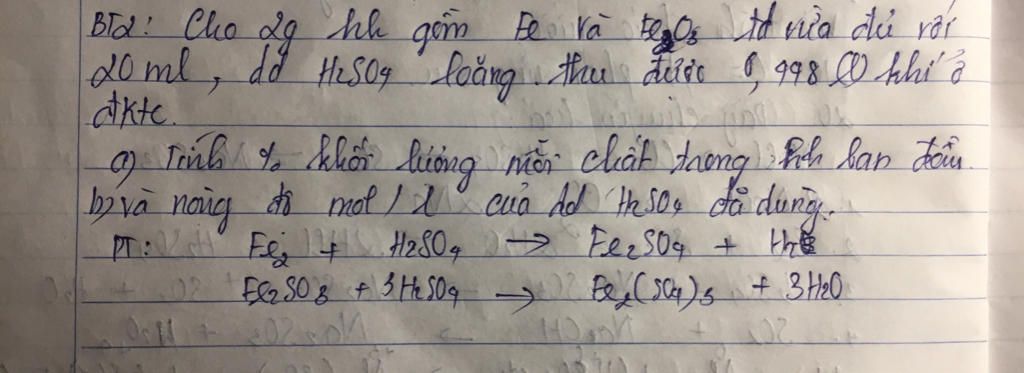 BT2: Cho 2g hh gồm Fe và Fe2O3 td vừa đủ với
20ml, dd H2SO4 loãng thu được 0,448 (l) khí ở
đktc.
a) Tính % khối lượng mỗi chất trong hh ban đầu
b) và nồng độ mol / l của dd H2SO4 đã dùng.
PT: Fe2 + H2SO4 → Fe2SO4 + H2
Fe2SO3 + 3H2SO4 → Fe2(SO4)3 + 3H2O